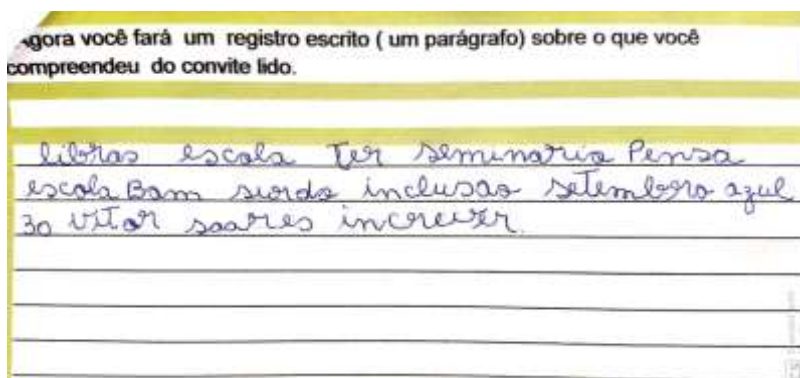 gora você fará um registro escrito ( um parágrafo) sobre o que você
compreendeu do convite lido.
libras escola ter seminario Pensa
escola Bam surdo inclusao setembro azul
30 vitor soares increver.